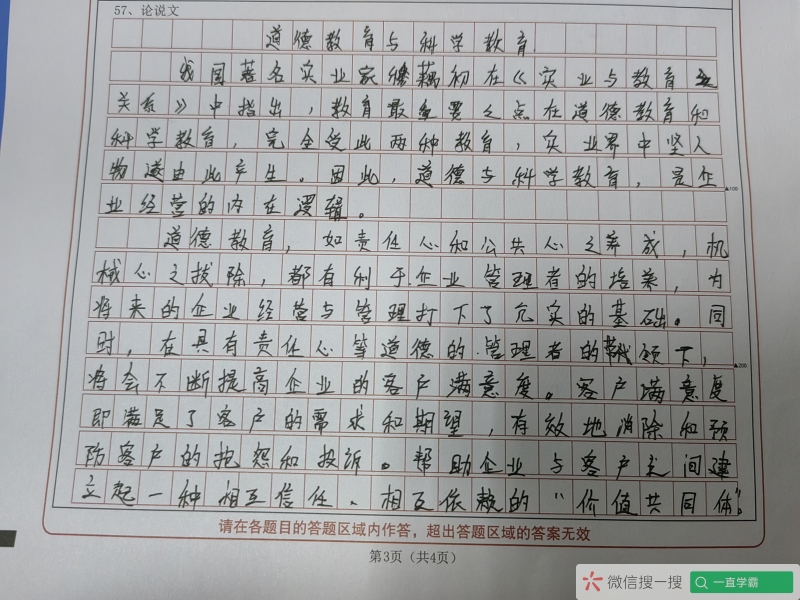 57、论说文
道德教育与科学教育
我国著名实业家穆藕初在《实业与教育之
关系》中指出，教育最重要之点在道德教育和
科学教育，完全受此两种教育，实业界中坚人
物遂由此产生。因此，道德与科学教育，是企
▲100
业经营的内在逻辑。
道德教育，如责任心和公共心之养成，机
械心之拔除，都有利于企业管理者的培养，为
将来的企业经营与管理打下了充实的基础。同
时，在具有责任心等道德的管理者的带领下，
▲200
将会不断提高企业的客户满意度。客户满意度
即满足了客户的需求和期望，有效地消除和预
防客户的抱怨和投诉。帮助企业与客户之间建
立起一种相互信任、相互依赖的“价值共同体”。
请在各题目的答题区域内作答，超出答题区域的答案无效
第3页（共4页）
微信搜一搜
一直学霸